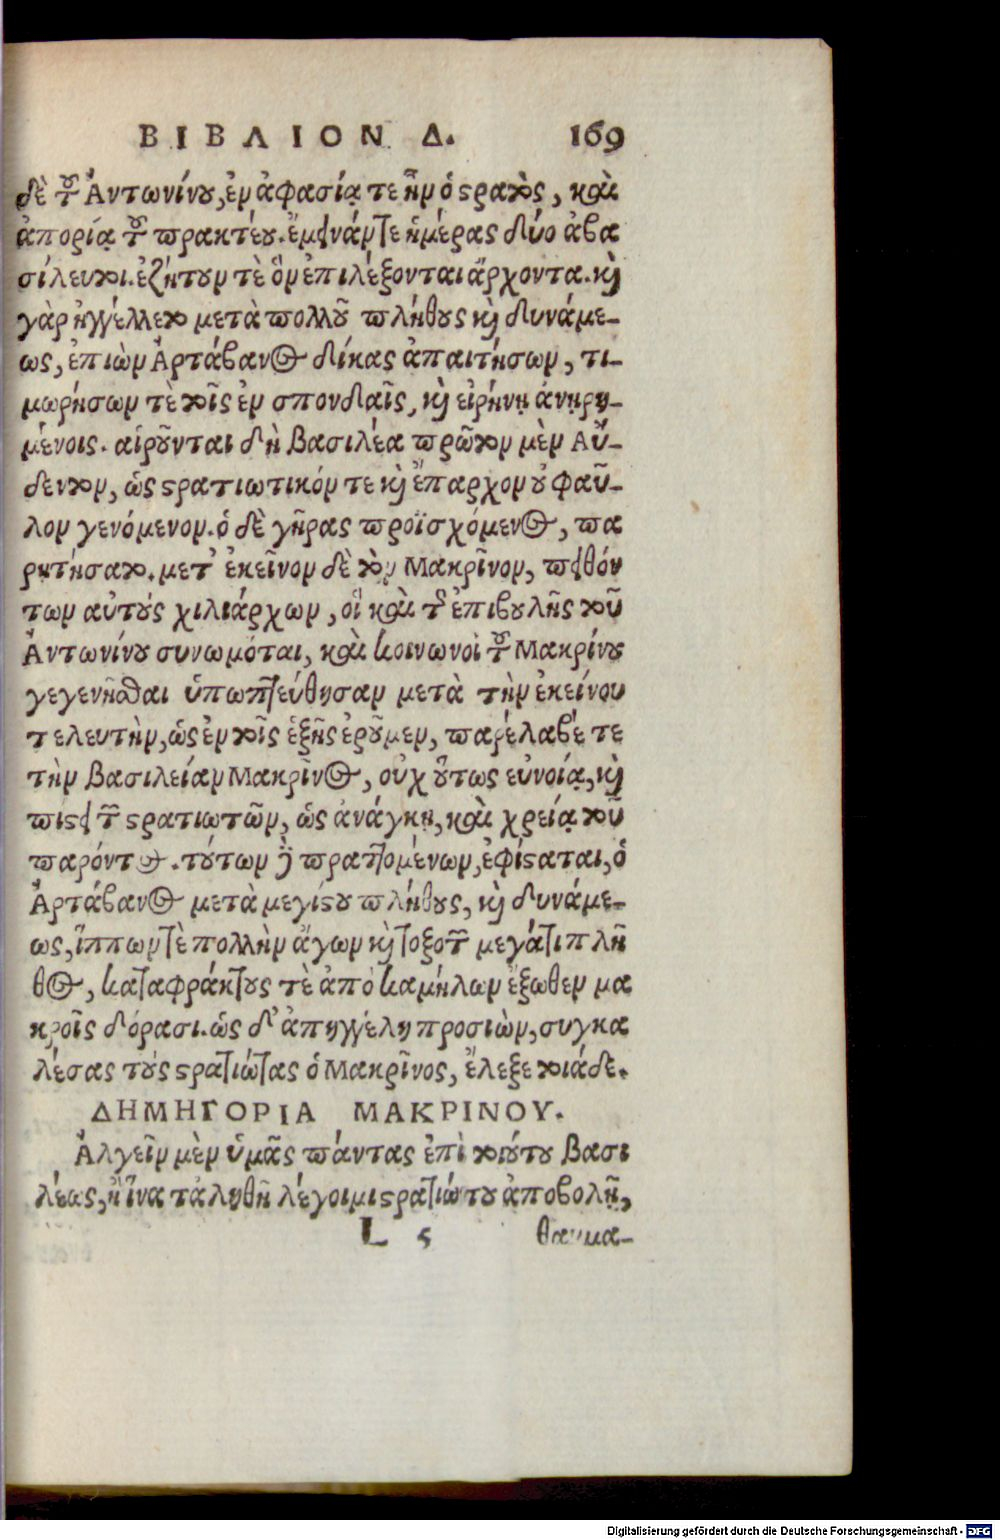 ΒΙΒΛΙΟΝ Δ. 169
δὲ τοῦ Ἀντωνίνου, ἐν ἀφασίᾳ τε ἦν ὁ στρατὸς, καὶ
ἀπορίᾳ τοῦ πρακτέου. ἔμεινάν τε ἡμέρας δύο ἀβα
σίλευτοι. ἐζήτουν τὲ ὃν ἐπιλέξονται ἄρχοντα. καὶ
γὰρ ἠγγέλλετο μετὰ πολλοῦ πλήθους καὶ δυνάμε-
ως, ἐπιὼν Ἀρτάβανος δίκας ἀπαιτήσων, τι-
μωρήσων τὲ τοῖς ἐν σπονδαῖς, καὶ εἰρήνῃ ἀνῃρη-
μένοις. αἱροῦνται δὴ βασιλέα πρῶτον μὲν Αὔ-
δεντον, ὡς στρατιωτικόν τε καὶ ἔπαρχον οὐ φαῦ-
λον γενόμενον. ὁ δὲ γῆρας προϊσχόμενος, πα
ρῃτήσατο. μετ' ἐκεῖνον δὲ τὸν Μακρῖνον, πειθόν
των αὐτοὺς χιλιάρχων, οἳ καὶ τῆς ἐπιβουλῆς τοῦ
Ἀντωνίνου συνωμόται, καὶ κοινωνοὶ τοῦ Μακρίνου
γεγενῆσθαι ὑπωπτεύθησαν μετὰ τὴν ἐκείνου
τελευτὴν, ὡς ἐν τοῖς ἑξῆς ἐροῦμεν, παρέλαβέ τε
τὴν βασιλείαν Μακρῖνος, οὐχ οὕτως εὐνοίᾳ, καὶ
πίστει τῶν στρατιωτῶν, ὡς ἀνάγκῃ, καὶ χρείᾳ τοῦ
παρόντος. τούτων δὲ πραττομένων, ἐφίσταται, ὁ
Ἀρτάβανος μετὰ μεγίστου πλήθους, καὶ δυνάμε-
ως, ἵππων τὲ πολλὴν ἄγων καὶ τοξοτῶν μεγάτι πλῆ
θος, καταφράκτους τὲ ἀπὸ καμήλων ἔξωθεν μα
κροῖς δόρασι. ὡς δ' ἀπηγγέλη προσιὼν, συγκα
λέσας τοὺς στρατιώτας ὁ Μακρῖνος, ἔλεξε τοιάδε.
ΔΗΜΗΓΟΡΙΑ ΜΑΚΡΙΝΟΥ.
Ἀλγεῖν μὲν ὑμᾶς πάντας ἐπὶ τοιούτου βασι
λέως, ἢ ἵνα τἀληθῆ λέγοιμι στρατιώτου ἀποβολῇ,
L ς θαυμα-
Digitalisierung gefördert durch die Deutsche Forschungsgemeinschaft - DFG